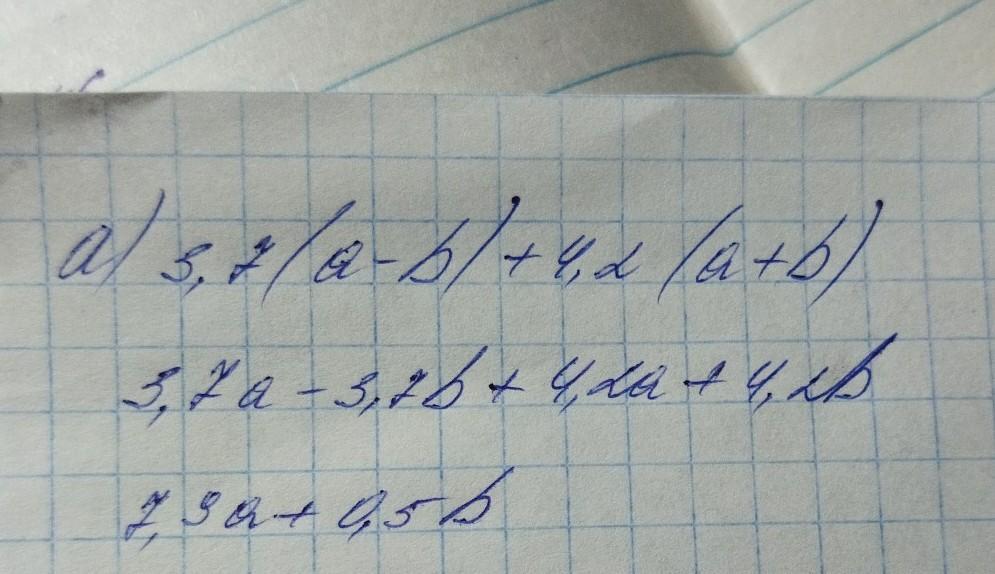 а) 3,7(a-b)+4,2(a+b)
3,7a-3,7b+4,2a+4,2b
7,9a+0,5b